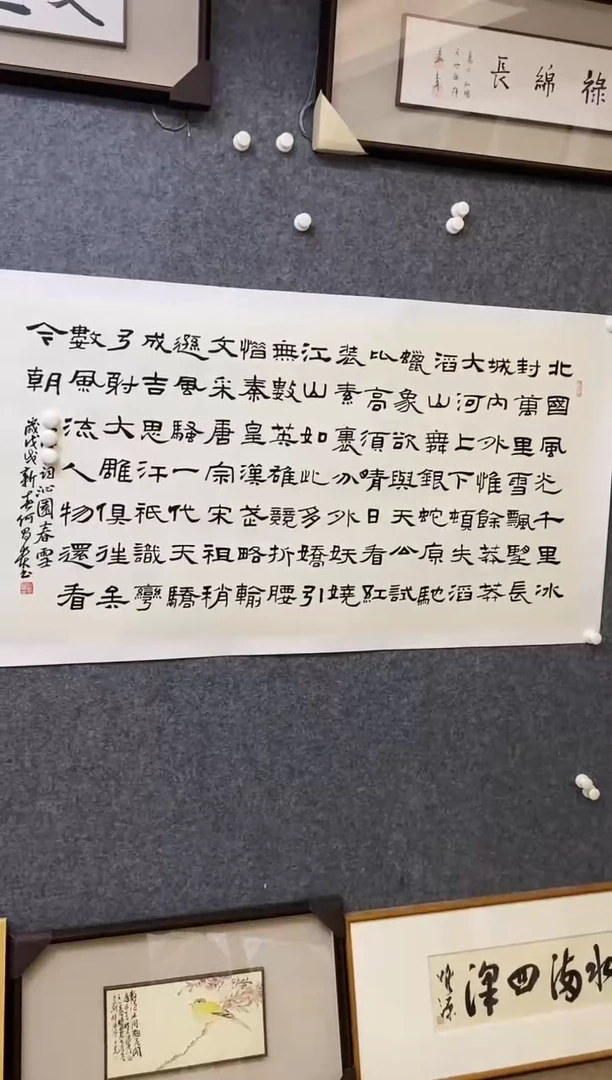 祿綿長
北國風光千里冰
封萬里雪飄望長
城內外惟餘莽莽
大河上下頓失滔
滔山舞銀蛇原馳
蠟象欲與天公試
比高須晴日看紅
裝素裹分外妖嬈
江山如此多嬌引
無數英雄競折腰
惜秦皇漢武略輸
文采唐宗宋祖稍
遜風騷一代天驕
成吉思汗祇識彎
弓射大雕俱往矣
數風流人物還看
今朝
詞沁園春雪
歲戊戌新春何書
海四